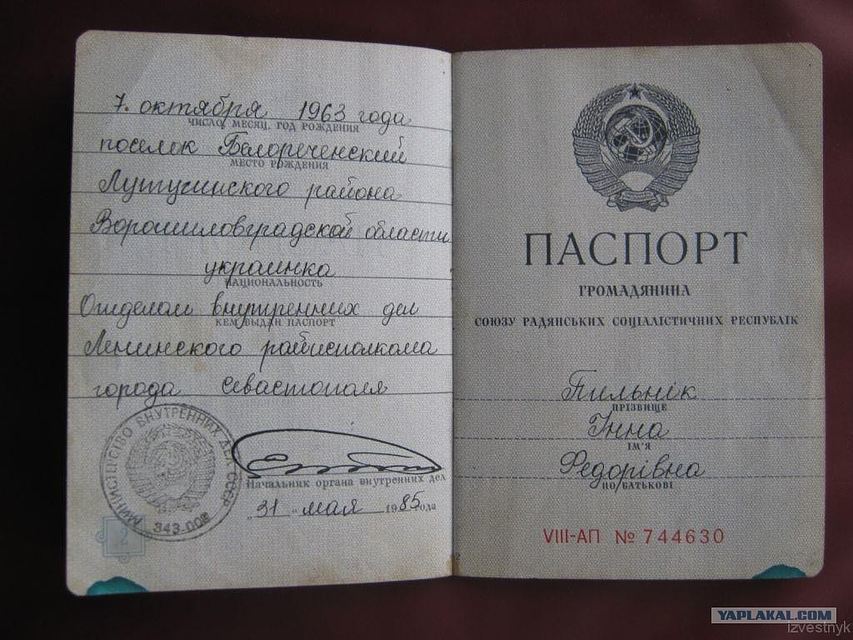 7. октября 1963 года
ЧИСЛО, МЕСЯЦ, ГОД РОЖДЕНИЯ
поселок Белореченский
МЕСТО РОЖДЕНИЯ
Лутугинского района
Ворошиловградской области
украинка
НАЦИОНАЛЬНОСТЬ
Отделом внутренних дел
КЕМ ВЫДАН ПАСПОРТ
Ленинского райисполкома
города Севастополя
МИНИСТЕРСТВО ВНУТРЕННИХ ДЕЛ СССР
343-008
Начальник органа внутренних дел
„31" мая 1985 года
2
ПАСПОРТ
ГРОМАДЯНИНА
СОЮЗУ РАДЯНСЬКИХ СОЦІАЛІСТИЧНИХ РЕСПУБЛІК
Пильнік
ПРІЗВИЩЕ
Інна
ІМ'Я
Федорівна
ПО БАТЬКОВІ
VIII-АП № 744630
YAPLAKAL.COM
izvestnyk